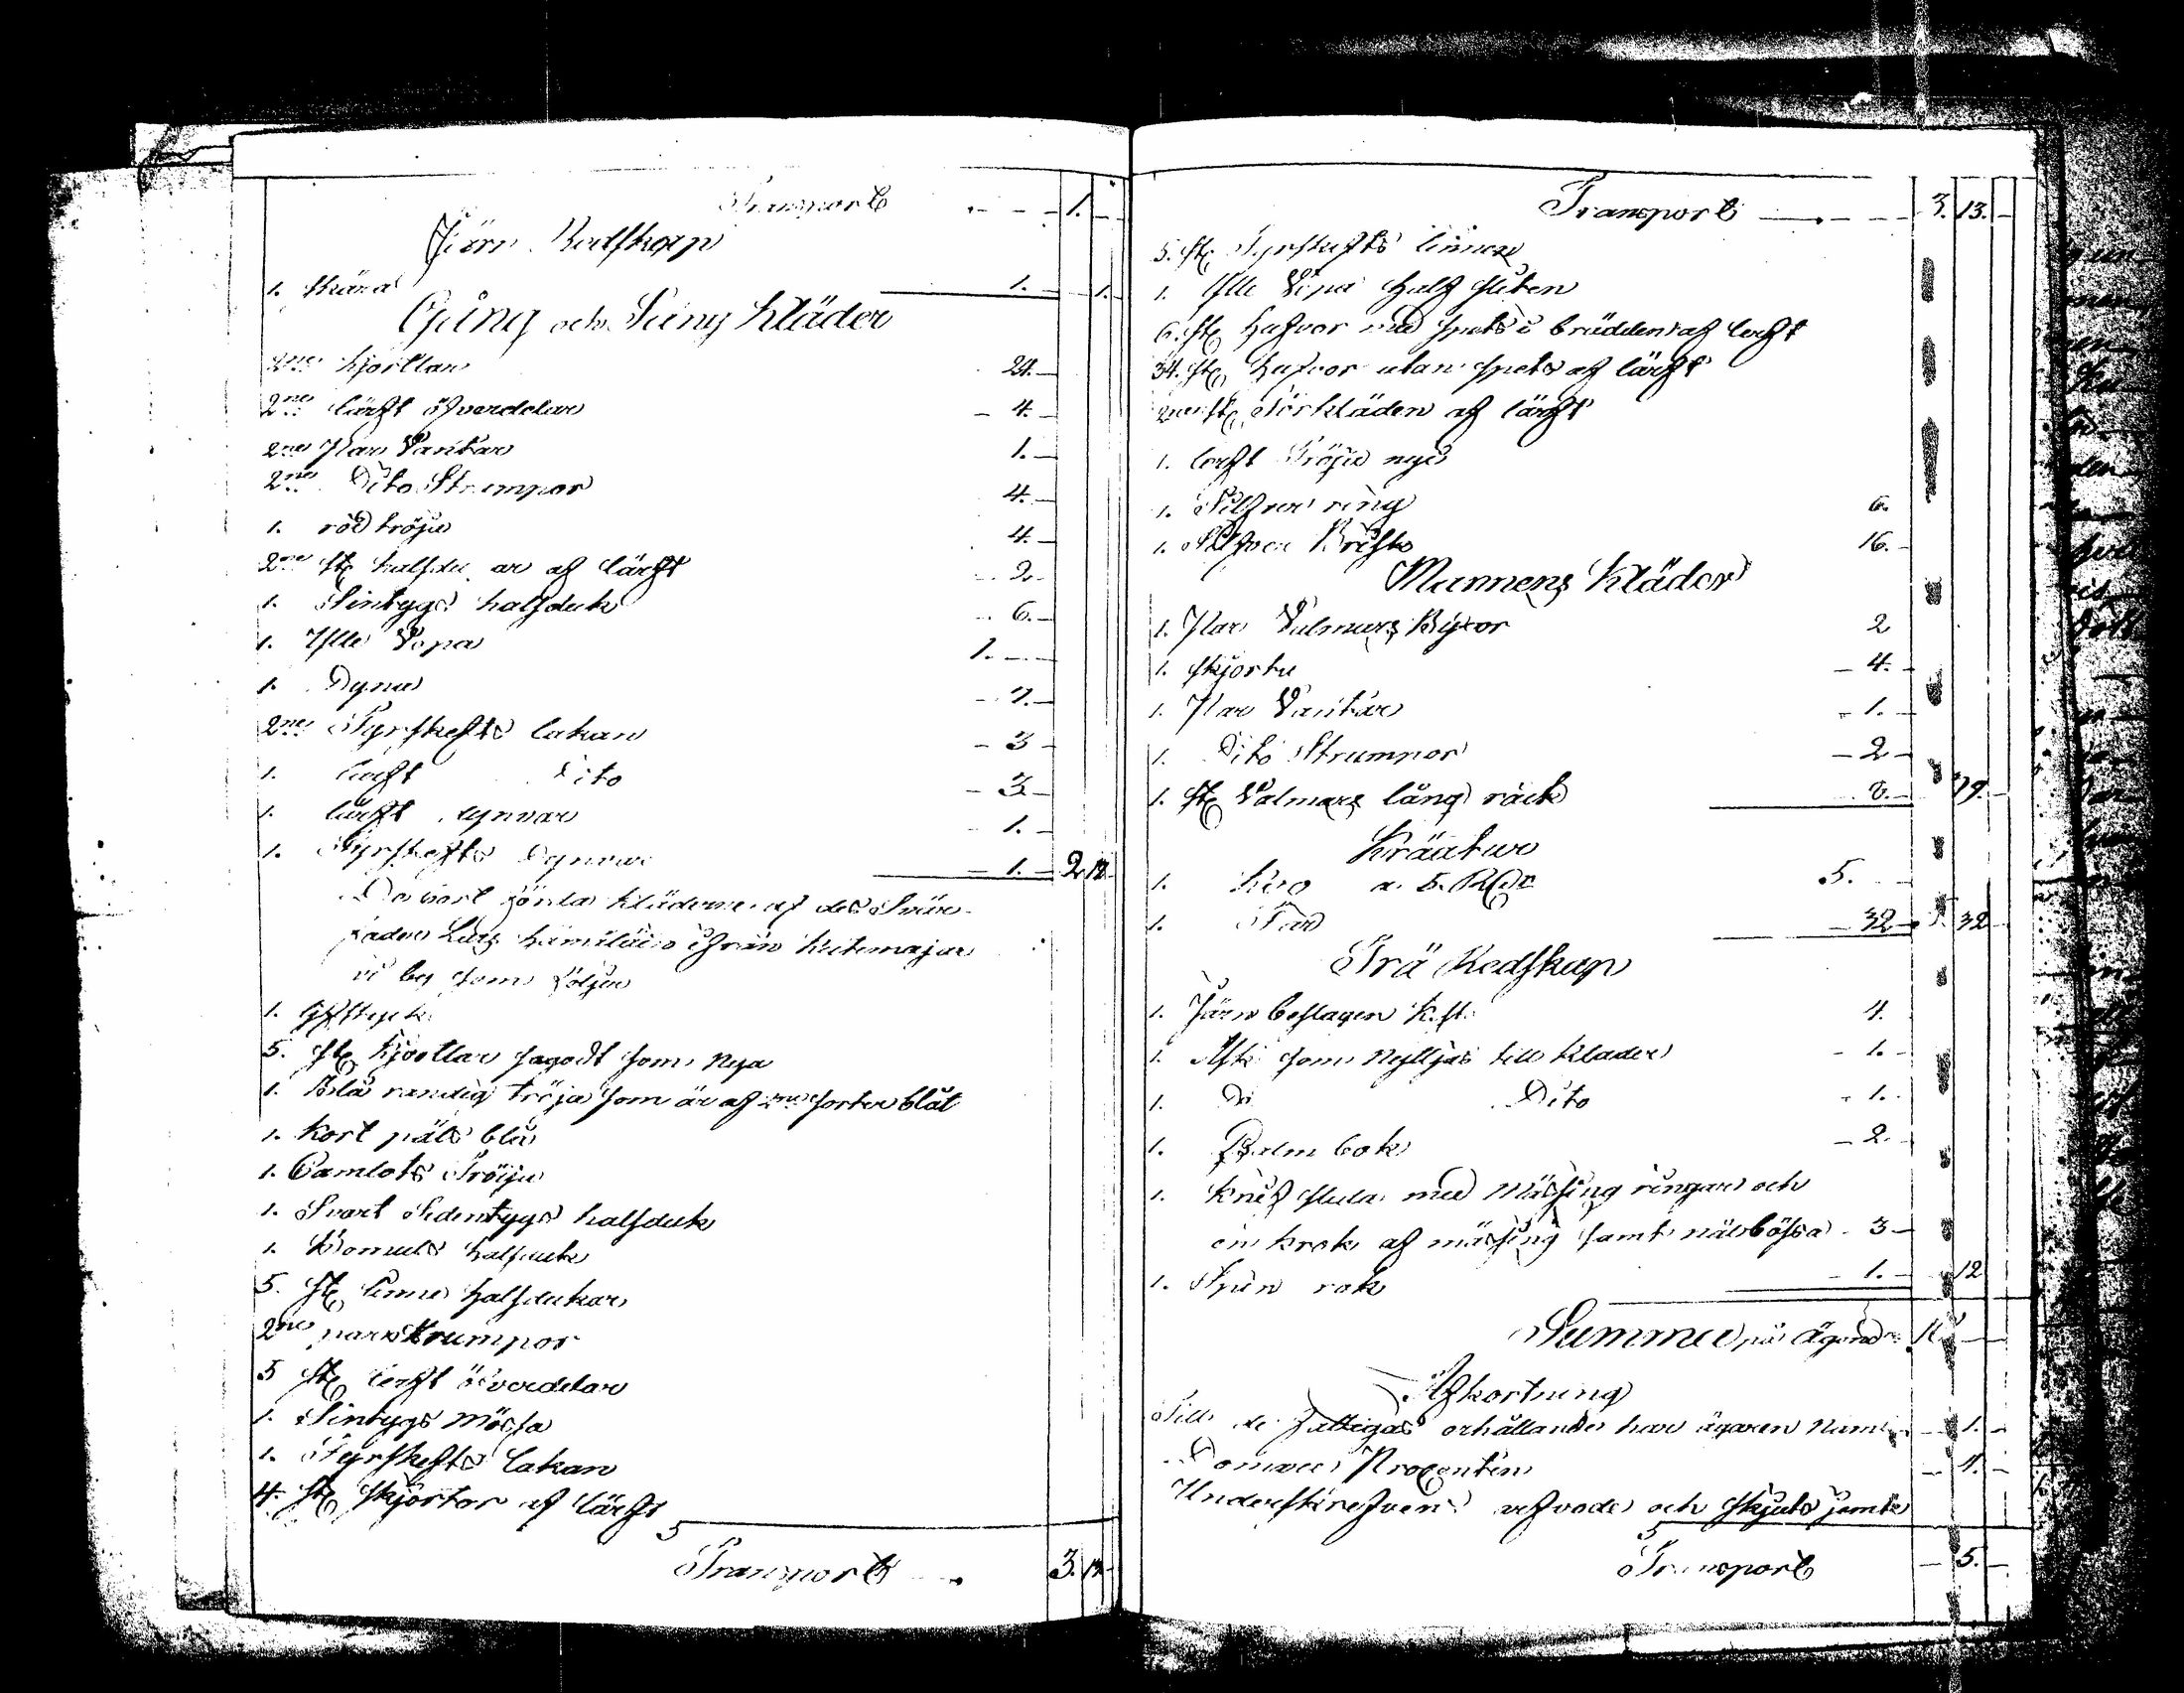 Transport - - - 1. -
Järn Redskap
1. skära 1. 1.
Gång och Säng kläder
2ne kjortlar 24.
2ne lärft öfverdelar - 4. -
2ne Par Vantar 1. -
2ne Dito Strumpor 4. -
1. röd tröja 4. -
2ne st halsdu ar af lärft 2.
1. Sintygs halsduk 6. -
1. Ylle Vepa 1. -
1. Dyna
2ne Fyrskefts lakan - 3 -
1. lärft Dito - 3 -
1. lärft dynvar - 1. -
1. Fyrskefts Dynvar - 1. - 2
kläderne af des Svär-
fader Lars ifrån
by som följer
1.
5. st kjortlar sagodt som Nya
1. Blå randig tröja som är af 2ne sorter blåt
1. kort päls blå
1. Camlots Tröija
1. Svart Sidentygs halsduk
1. Bomuls halsduk
5. st linne halsdukar
2ne par strumpor
5 st lerft öfverdelar
1. Sintygs Mössa
1. Fyrskefts Lakan
4. st skjortor af lärft
Transport 3.
Transport - - - 3. 13. -
5. st Fyrskefts linnen
1. Ylle Vepa half sliten
6. st hufvor med spets i brädden af lerft
34. st hufvor utan spets af lärft
2ne st Förkläden af lärft
1. lerft Tröja nya
1. Silfver ring 6.
1. Silfver Briska 16. -
Mannens Kläder
1. Par Valmars Byxor 2
1. skjorta - 4. -
1. Par Vantar - 1. -
1. Dito Strumpor - 2 -
1. st Valmars lång råck 8. - 39. -
Kräatur
1. Ko a. 5. Rdr 5.
1. Får - 32 - 5 32
Trä Redskap
1. Järn beslagen 4.
1. Ask som Nyttjas till klader - 1. -
1. Do Dito - 1. -
1. Psalm bok - 2. -
1. knif slida med Mässing ringar och
en krok af mässing samt nålbössa - 3 -
1. Spin rok - 1. - 12
Summa på ägend
Afkortning
Till de fattigas erhållande har ägaren - 1. -
Domare Procenten
Underskrefven arfvode och skjuts jemte
Transport - 5. -